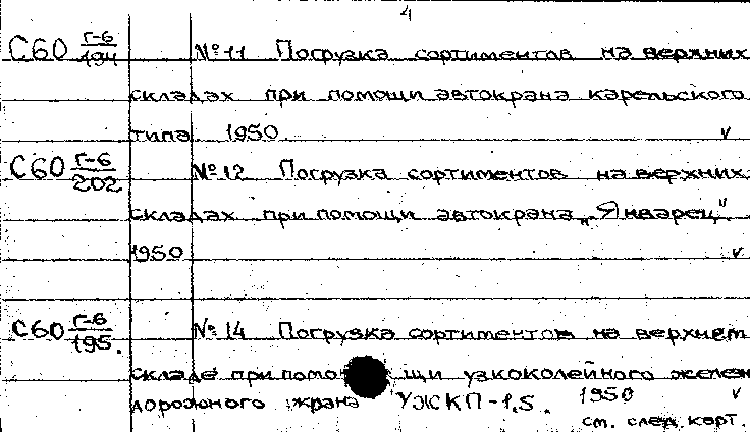 4
С60 Г-6/194 №11 Погрузка сортиментов на верхних
складах при помощи автокрана карельского
типа 1950. v
С60 Г-6/202 №12 Погрузка сортиментов на верхних
складах при помощи автокрана „Январец"
1950 v
С60 Г-6/195. №14 Погрузка сортиментов на верхнем
складе при помо щи узкоколейного желез
дорожного крана УЖКП-1,5. 1950 v
см. след. карт.